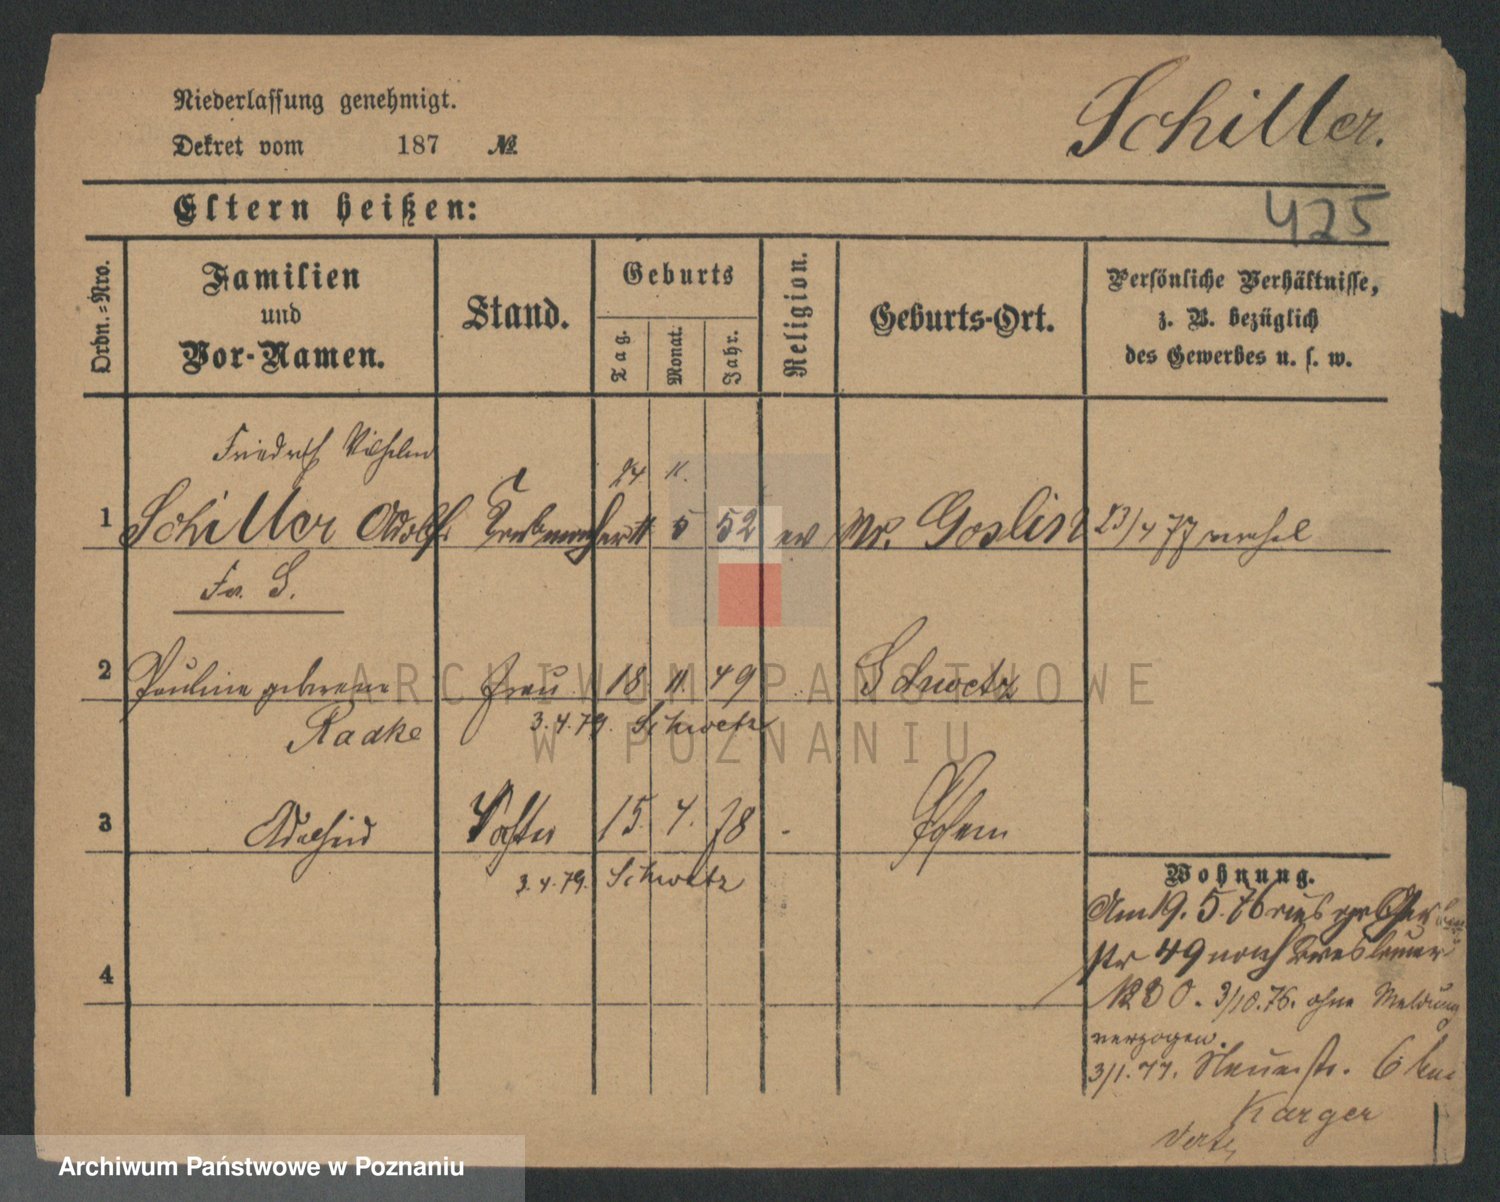 Niederlassung genehmigt.
Schiller.
Dekret vom 187 №
Eltern heißen:
425
Ordn.-Nro.
Familien
und
Vor-Namen.
Stand.
Geburts
Tag.
Monat.
Jahr.
Religion.
Geburts-Ort.
Persönliche Verhältnisse,
z. B. bezüglich
des Gewerbes u. s. w.
Friedrich Wilhelm
24 11.
1 Schiller Adolf 5 52 ev Mr. Goslin 23/4 77
Fr. S.
2 Pauline geborene Frau 18. 11. 49 Schwetz
Radke 3.4.79. Schwetz
3 Adelheid Tochter 15. 4. 78 - Posen
3.4.79. Schwetz
Wohnung.
Am 19. 5. 76
str 49 nach Breslauer
3/10.76. ohne Meldung
verzogen.
3/1.77. 6 bei
Karger
4
ARCHIWUM PAŃSTWOWE
W POZNANIU
Archiwum Państwowe w Poznaniu